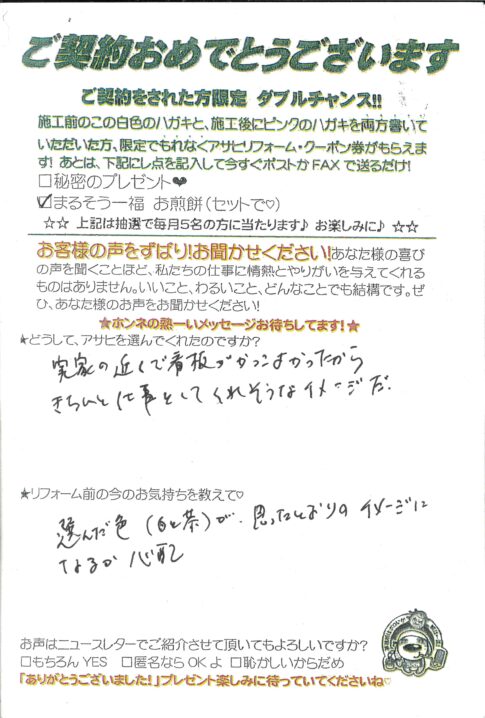 ご契約おめでとうございます
ご契約をされた方限定 ダブルチャンス!!
施工前のこの白色のハガキと、施工後にピンクのハガキを両方書いて
いただいた方、限定でもれなくアサヒリフォーム・クーポン券がもらえま
す! あとは、下記にレ点を記入して今すぐポストかFAXで送るだけ!
□秘密のプレゼント❤
☑まるそう一福 お煎餅(セットで♡)
☆☆ 上記は抽選で毎月5名の方に当たります♪ お楽しみに♪ ☆☆
お客様の声をずばり!お聞かせください!あなた様の喜び
の声を聞くことほど、私たちの仕事に情熱とやりがいを与えてくれる
ものはありません。いいこと、わるいこと、どんなことでも結構です。ぜ
ひ、あなた様のお声をお聞かせください!
★ホンネの熱ーいメッセージお待ちしてます!★
★どうして、アサヒを選んでくれたのですか?
実家の近くで看板がかっこよかったから
きちんと仕事をしてくれそうなイメージだ.
★リフォーム前の今のお気持ちを教えて♡
選んだ色(白と茶)が、思ったとおりのイメージに
なるか心配
お声はニュースレターでご紹介させて頂いてもよろしいですか?
□もちろんYES □匿名ならOKよ □恥かしいからだめ
「ありがとうございました!」プレゼント楽しみに待っていてくださいね♡